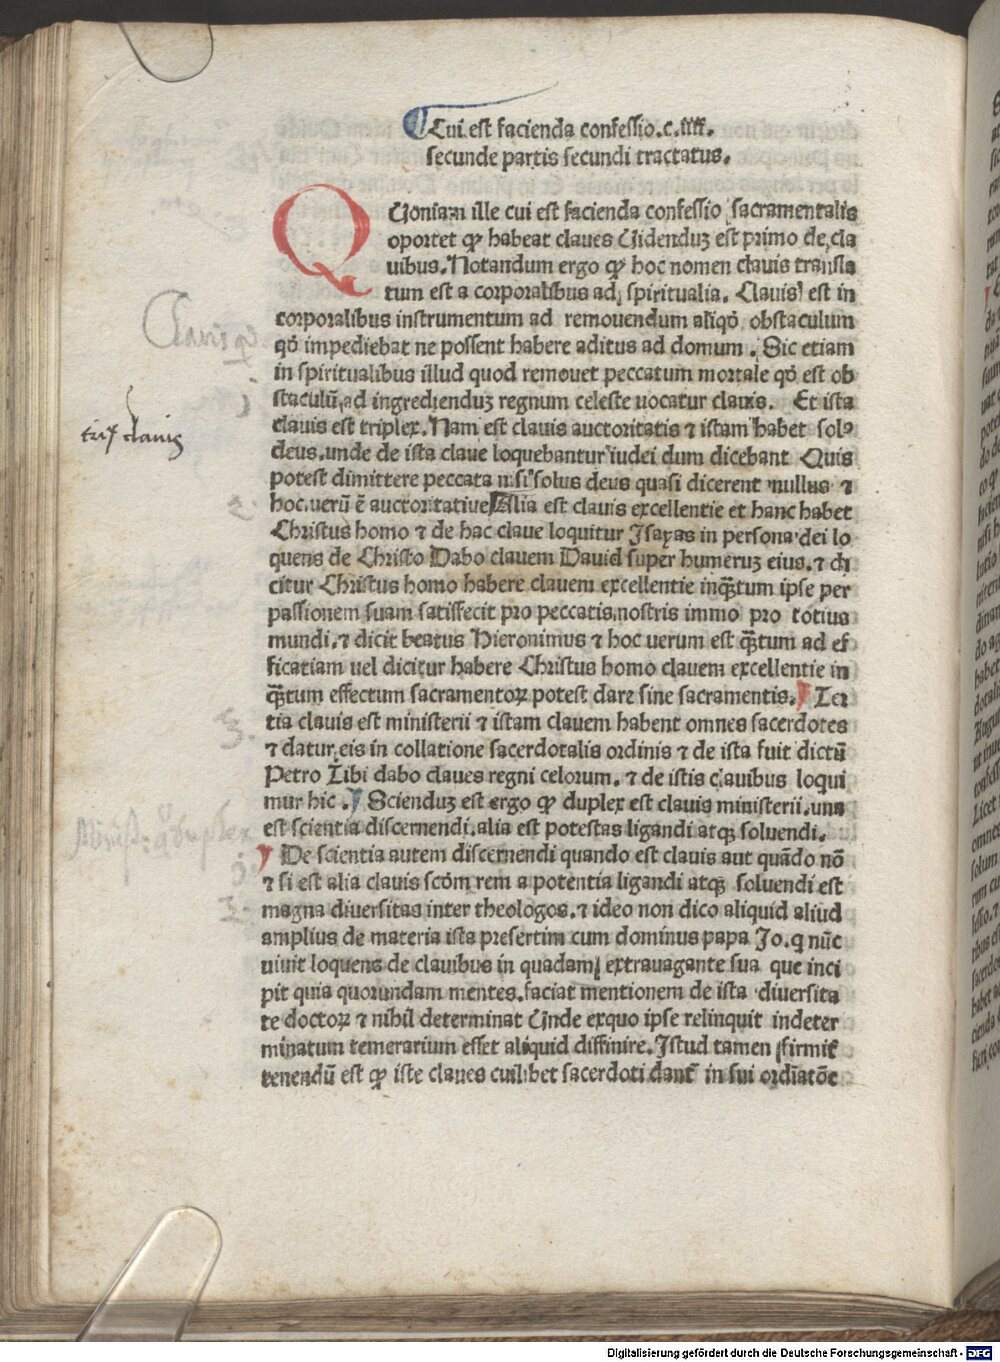 Cui est facienda confessio.c.iiii.
secunde partis secundi tractatus.
QUoniam ille cui est facienda confessio sacramentalis
oportet ꝙ habeat claues Uidenduꝫ est primo de cla
uibus. Notandum ergo ꝙ hoc nomen clauis transla
tum est a corporalibus ad spiritualia. Clauis est in
corporalibus instrumentum ad remouendum aliqō obstaculum
qō impediebat ne possent habere aditus ad domum. Sic etiam
in spiritualibus illud quod remouet peccatum mortale qō est ob
staculū ad ingredienduꝫ regnum celeste uocatur clauis. Et ista
clauis est triplex. Nam est clauis auctoritatis ⁊ istam habet solꝰ
deus. unde de ista claue loquebantur iudei dum dicebant Quis
potest dimittere peccata nisi solus deus quasi dicerent nullus ⁊
hoc uerū ē auctoritatiue Alia est clauis excellentie et hanc habet
Christus homo ⁊ de hac claue loquitur Isayas in persona dei lo
quens de Christo Dabo clauem Dauid super humeruꝫ eius. ⁊ di
citur Christus homo habere clauem excellentie inq̄ꝫtum ipse per
passionem suam satisfecit pro peccatis nostris immo pro totius
mundi. ⁊ dicit beatus Hieronimus ⁊ hoc uerum est q̄ꝫtum ad ef
ficatiam uel dicitur habere Christus homo clauem excellentie in
q̄ꝫtum effectum sacramentoꝝ potest dare sine sacramentis. Ter
tia clauis est ministerii ⁊ istam clauem habent omnes sacerdotes
⁊ datur eis in collatione sacerdotalis ordinis ⁊ de ista fuit dictū
Petro Tibi dabo claues regni celorum. ⁊ de istis clauibus loqui
mur hic. Scienduꝫ est ergo ꝙ duplex est clauis ministerii. una
est scientia discernendi. alia est potestas ligandi atqꝫ soluendi.
De scientia autem discernendi quando est clauis aut quādo nō
⁊ si est alia clauis scōm rem a potentia ligandi atqꝫ soluendi est
magna diuersitas inter theologos. ⁊ ideo non dico aliquid aliud
amplius de materia ista presertim cum dominus papa Jo. q nūc
uiuit loquens de clauibus in quadam extrauagante sua que inci
pit quia quorundam mentes. faciat mentionem de ista diuersita
te doctoꝝ ⁊ nihil determinat Unde exquo ipse relinquit indeter
minatum temerarium esset aliquid diffinire. Istud tamen firmiť
tenendū est ꝙ iste claues cuilibet sacerdoti danť in sui ordīatōe
Clauis
triꝑ clauis
1
2.
3.
duplex
Digitalisierung gefördert durch die Deutsche Forschungsgemeinschaft - DFG